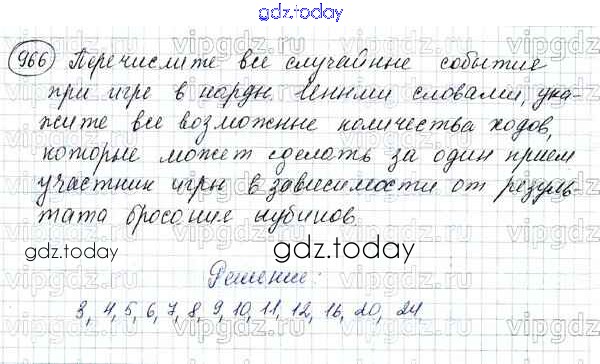 gdz.today
966 Перечислите все случайные событие
при игре в нарды. Иными словами, ука-
жите все возможные количества ходов,
которые может сделать за один прием
участник игры в зависимости от резуль-
тата бросания кубиков
gdz.today gdz.today
Решение:
3, 4, 5, 6, 7, 8, 9, 10, 11, 12, 16, 20, 24